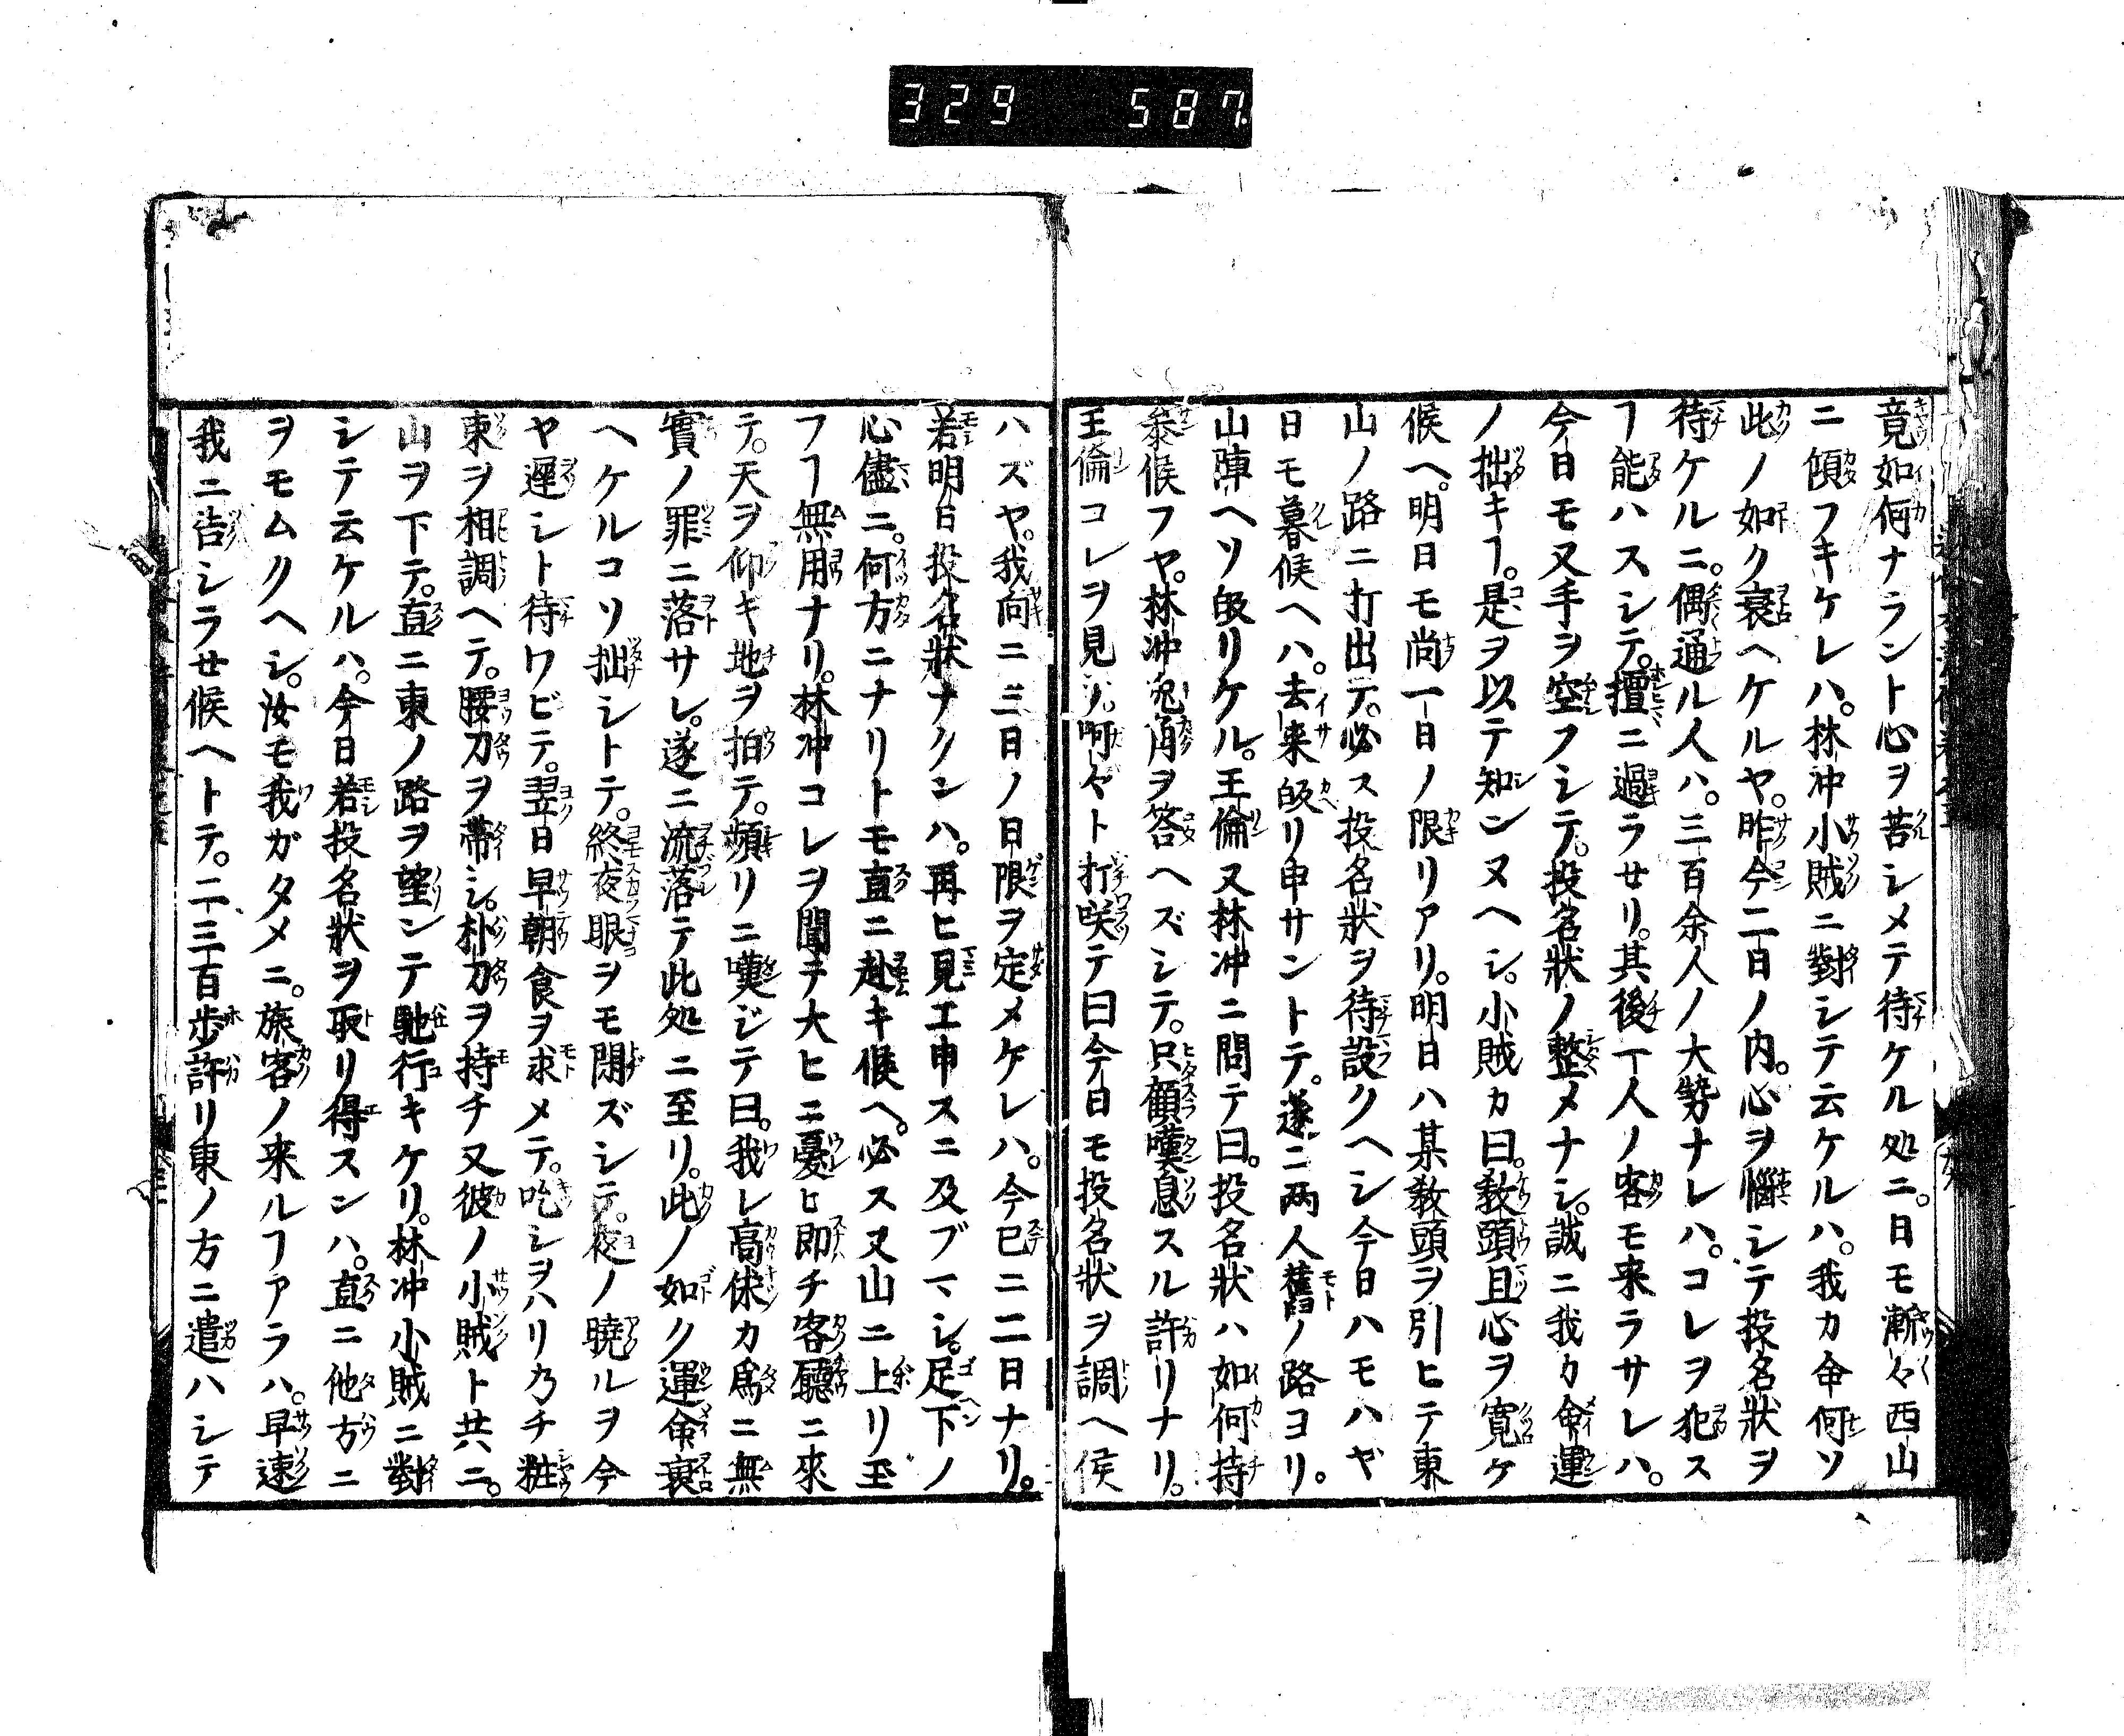 329 587
竟如何ナラント心ヲ苦シメテ待ケル処ニ。日モ漸々西山
ニ傾フキケレハ。林冲小賊ニ對シテ云ケルハ。我カ命何ソ
此ノ如ク衰ヘケルヤ。昨今二日ノ内。心ヲ惱シテ投名狀ヲ
待ケルニ。偶通ル人ハ。三百余人ノ大勢ナレハ。コレヲ犯ス
ヿ能ハスシテ。擅ニ過ラセリ。其後一人ノ客モ来ラサレハ。
今日モ又手ヲ空フシテ。投名狀ノ整メナシ。誠ニ我カ命運
ノ拙キヿ。是ヲ以テ知ンヌヘシ。小賊カ曰。敎頭且心ヲ寬ケ
候ヘ。明日モ尚一日ノ限リアリ。明日ハ某敎頭ヲ引ヒテ東
山ノ路ニ打出テ。必ス投名狀ヲ待設クヘシ今日ハモハヤ
日モ暮候ヘハ。去来皈リ申サントテ。遂ニ両人舊ノ路ヨリ。
山陣ヘソ皈リケル。王倫又林冲ニ問テ曰。投名狀ハ如何持
参候フヤ。林冲兎角ヲ答ヘズシテ。只顧嘆息スル許リナリ。
王倫コレヲ見テ。呵々ト打咲テ曰今日モ投名狀ヲ調ヘ候
ハズヤ。我向ニ三日ノ日限ヲ定メケレハ。今已ニ二日ナリ。
若明日投名狀ナクンハ。再ヒ見エ申スニ及ブマシ。足下ノ
心儘ニ。何方ニナリトモ直ニ赴キ候ヘ。必ス又山ニ上リ玉
フヿ無用ナリ。林冲コレヲ聞テ大ヒニ憂ヒ即チ客廳ニ來
テ。天ヲ仰キ地ヲ拍テ。頻リニ嘆ジテ曰。我レ高俅カ爲ニ無
實ノ罪ニ落サレ。遂ニ流落テ此処ニ至リ。此ノ如ク運命衰
ヘケルコソ拙シトテ。終夜眼ヲモ閉ズシテ。夜ノ曉ルヲ今
ヤ遲シト待ワビテ。翌日早朝食ヲ求メテ。吃シヲハリ乃チ粧
束ヲ相調ヘテ。腰刀ヲ帶シ。朴刀ヲ持チ又彼ノ小賊ト共ニ。
山ヲ下テ。直ニ東ノ路ヲ望ンテ馳行キケリ。林冲小賊ニ對
シテ云ケルハ。今日若投名狀ヲ取リ得スンハ。直ニ他方ニ
ヲモムクヘシ。汝モ我ガタメニ。旅客ノ来ルヿアラハ。早速
我ニ告シラせ候ヘトテ。二三百歩許リ東ノ方ニ遣ハシテ